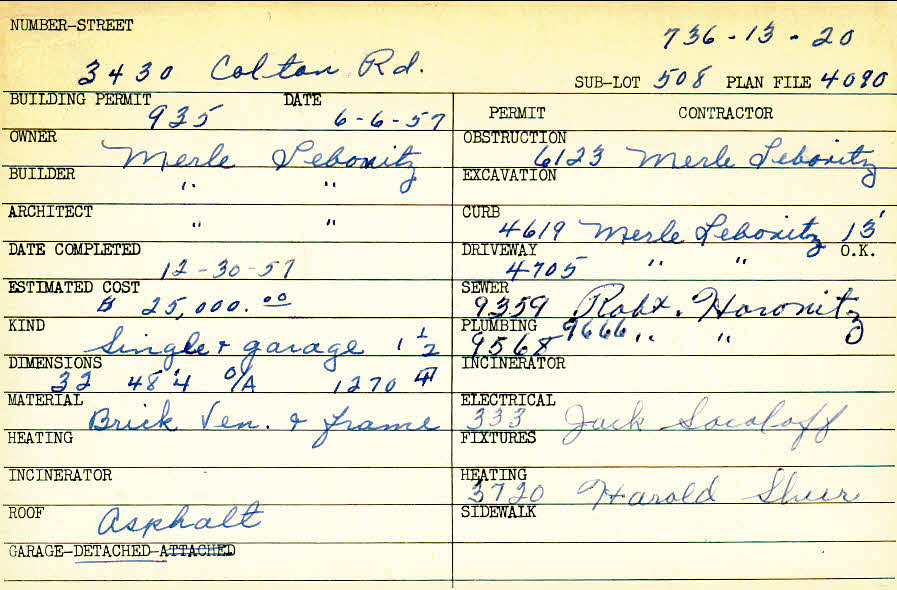 NUMBER-STREET
736-13-20
3430 Colton Rd.
SUB-LOT 508 PLAN FILE 4090
BUILDING PERMIT DATE
935 6-6-57
PERMIT CONTRACTOR
OWNER Merle Lebovitz
OBSTRUCTION 6123 Merle Lebovitz
BUILDER " "
EXCAVATION
ARCHITECT " "
CURB 4619 Merle Lebovitz 13'
DATE COMPLETED 12-30-57
DRIVEWAY 4705 " " O.K.
ESTIMATED COST $ 25,000.00
SEWER 9359 Robt. Horovitz
KIND Single & garage 1 1/2
PLUMBING 9666 " "
9568
DIMENSIONS 32 48'4 O/A 1270
INCINERATOR
MATERIAL Brick Ven. & frame
ELECTRICAL 333 Jack Socoloff
HEATING
FIXTURES
INCINERATOR
HEATING 3720 Harold Shur
ROOF Asphalt
SIDEWALK
GARAGE-DETACHED-ATTACHED